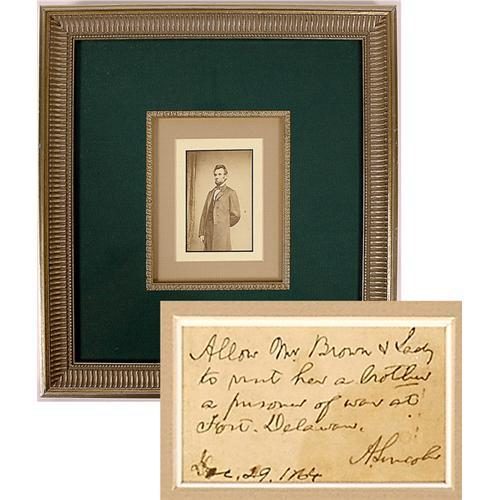 Allow Mr Brown & Lady
to visit her a brother
a prisoner of war at
Fort. Delaware.
A. Lincoln
Dec. 29. 1864